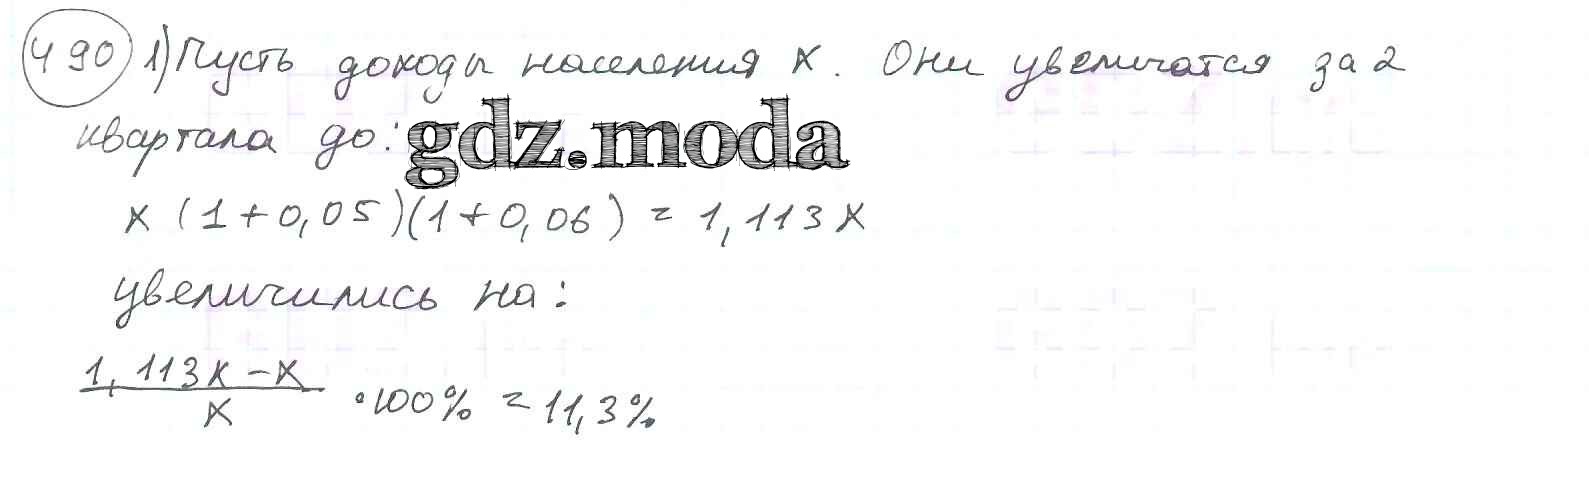 490 1) Пусть доходы населения x. Они увеличатся за 2
квартала до: gdz.moda
x (1+0,05)(1+0,06) = 1,113x
увеличились на:
1,113x - x
x
·100% = 11,3%